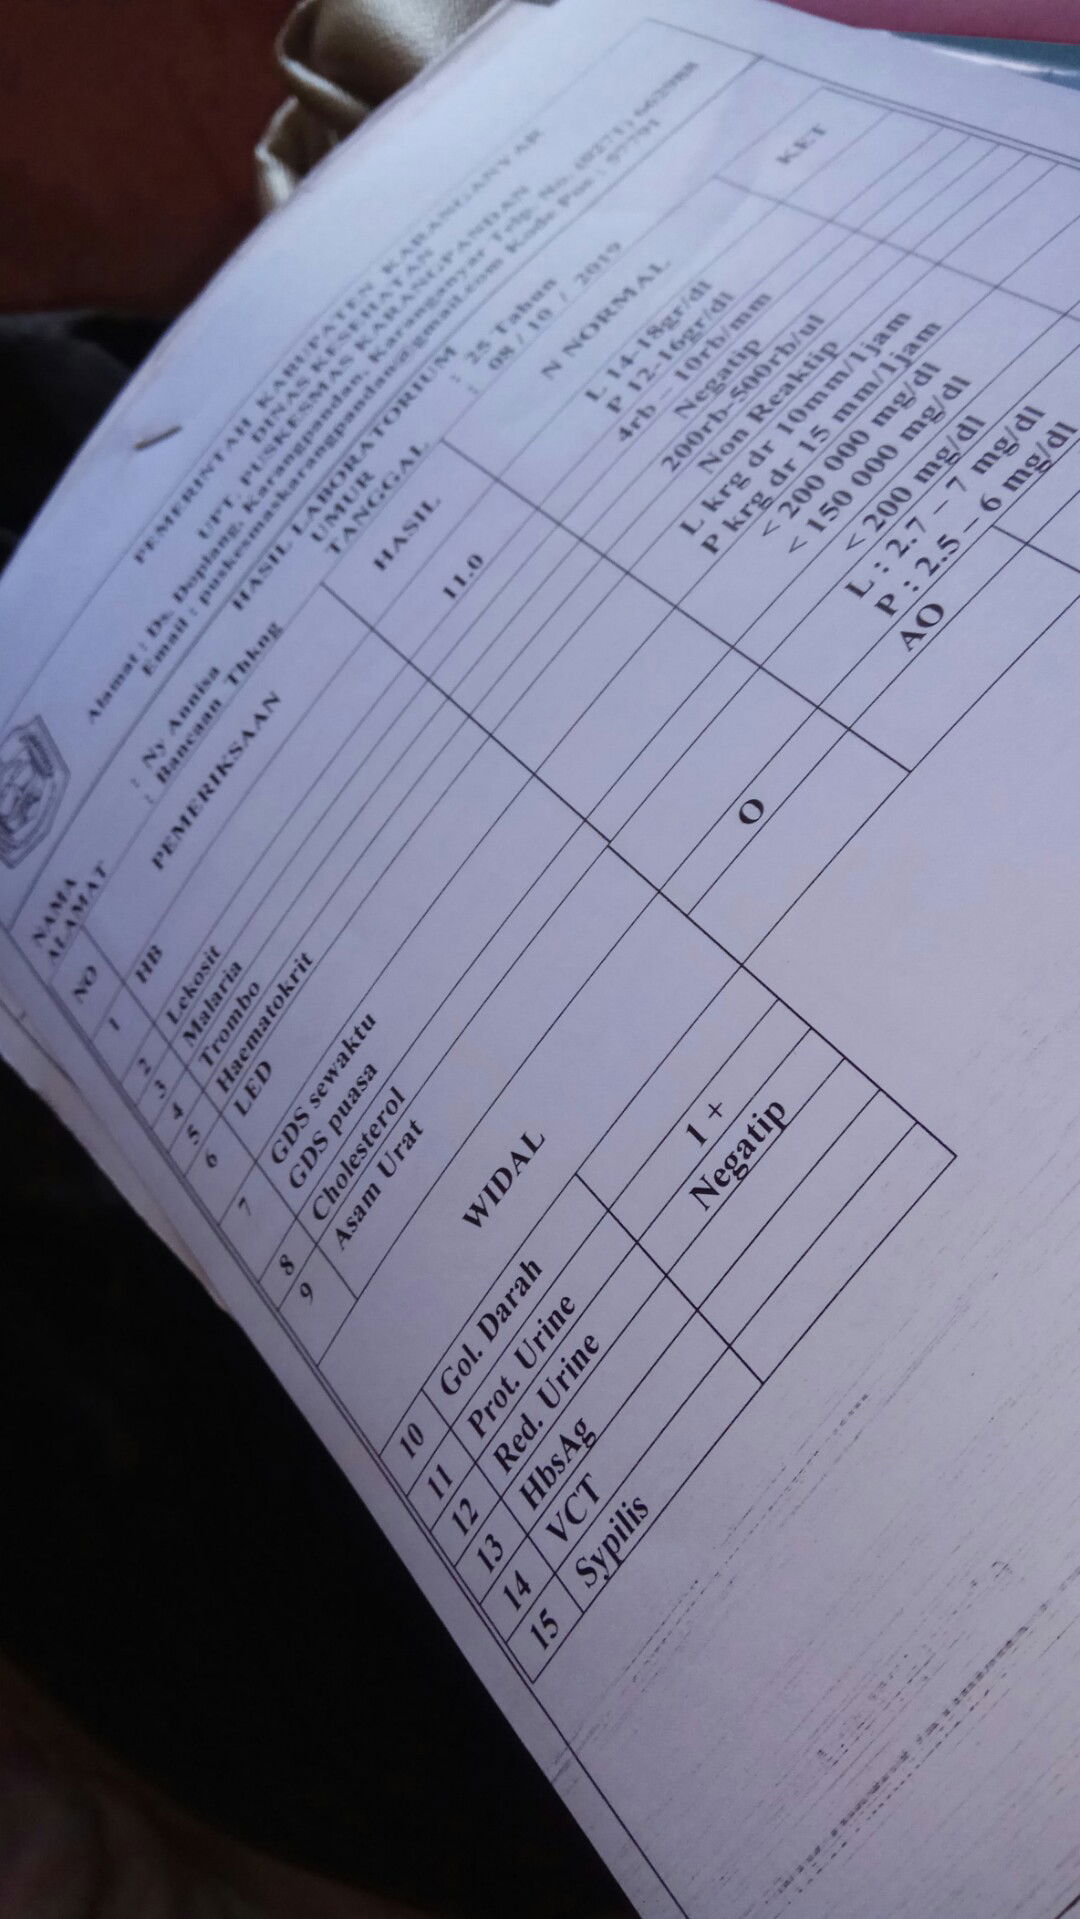 PEMERINTAH KABUPATEN KARANGANYAR
DINAS KESEHATAN
UPT. PUSKESMAS KARANGPANDAN
Alamat : Ds. Doplang, Karangpandan, Karanganyar Telp. No. (0271)
Email : puskesmaskarangpandan@gmail.com Kode Pos : 57791
HASIL LABORATORIUM
NAMA : Ny Annisa UMUR : 25 Tahun
ALAMAT : Bancaan Tbkng TANGGAL : 08 / 10 / 2019
NO PEMERIKSAAN HASIL N NORMAL KET
1 HB 11.0 L 14-18gr/dl
P 12-16gr/dl
2 Lekosit 4rb – 10rb/mm
3 Malaria Negatip
4 Trombo 200rb-500rb/ul
5 Haematokrit Non Reaktip
6 LED L krg dr 10mm/1jam
P krg dr 15 mm/1jam
7 GDS sewaktu < 200 000 mg/dl
GDS puasa < 150 000 mg/dl
8 Cholesterol < 200 mg/dl
9 Asam Urat L : 2.7 – 7 mg/dl
P : 2.5 – 6 mg/dl
WIDAL O AO
10 Gol. Darah
11 Prot. Urine 1 +
12 Red. Urine Negatip
13 HbsAg
14 VCT
15 Sypilis